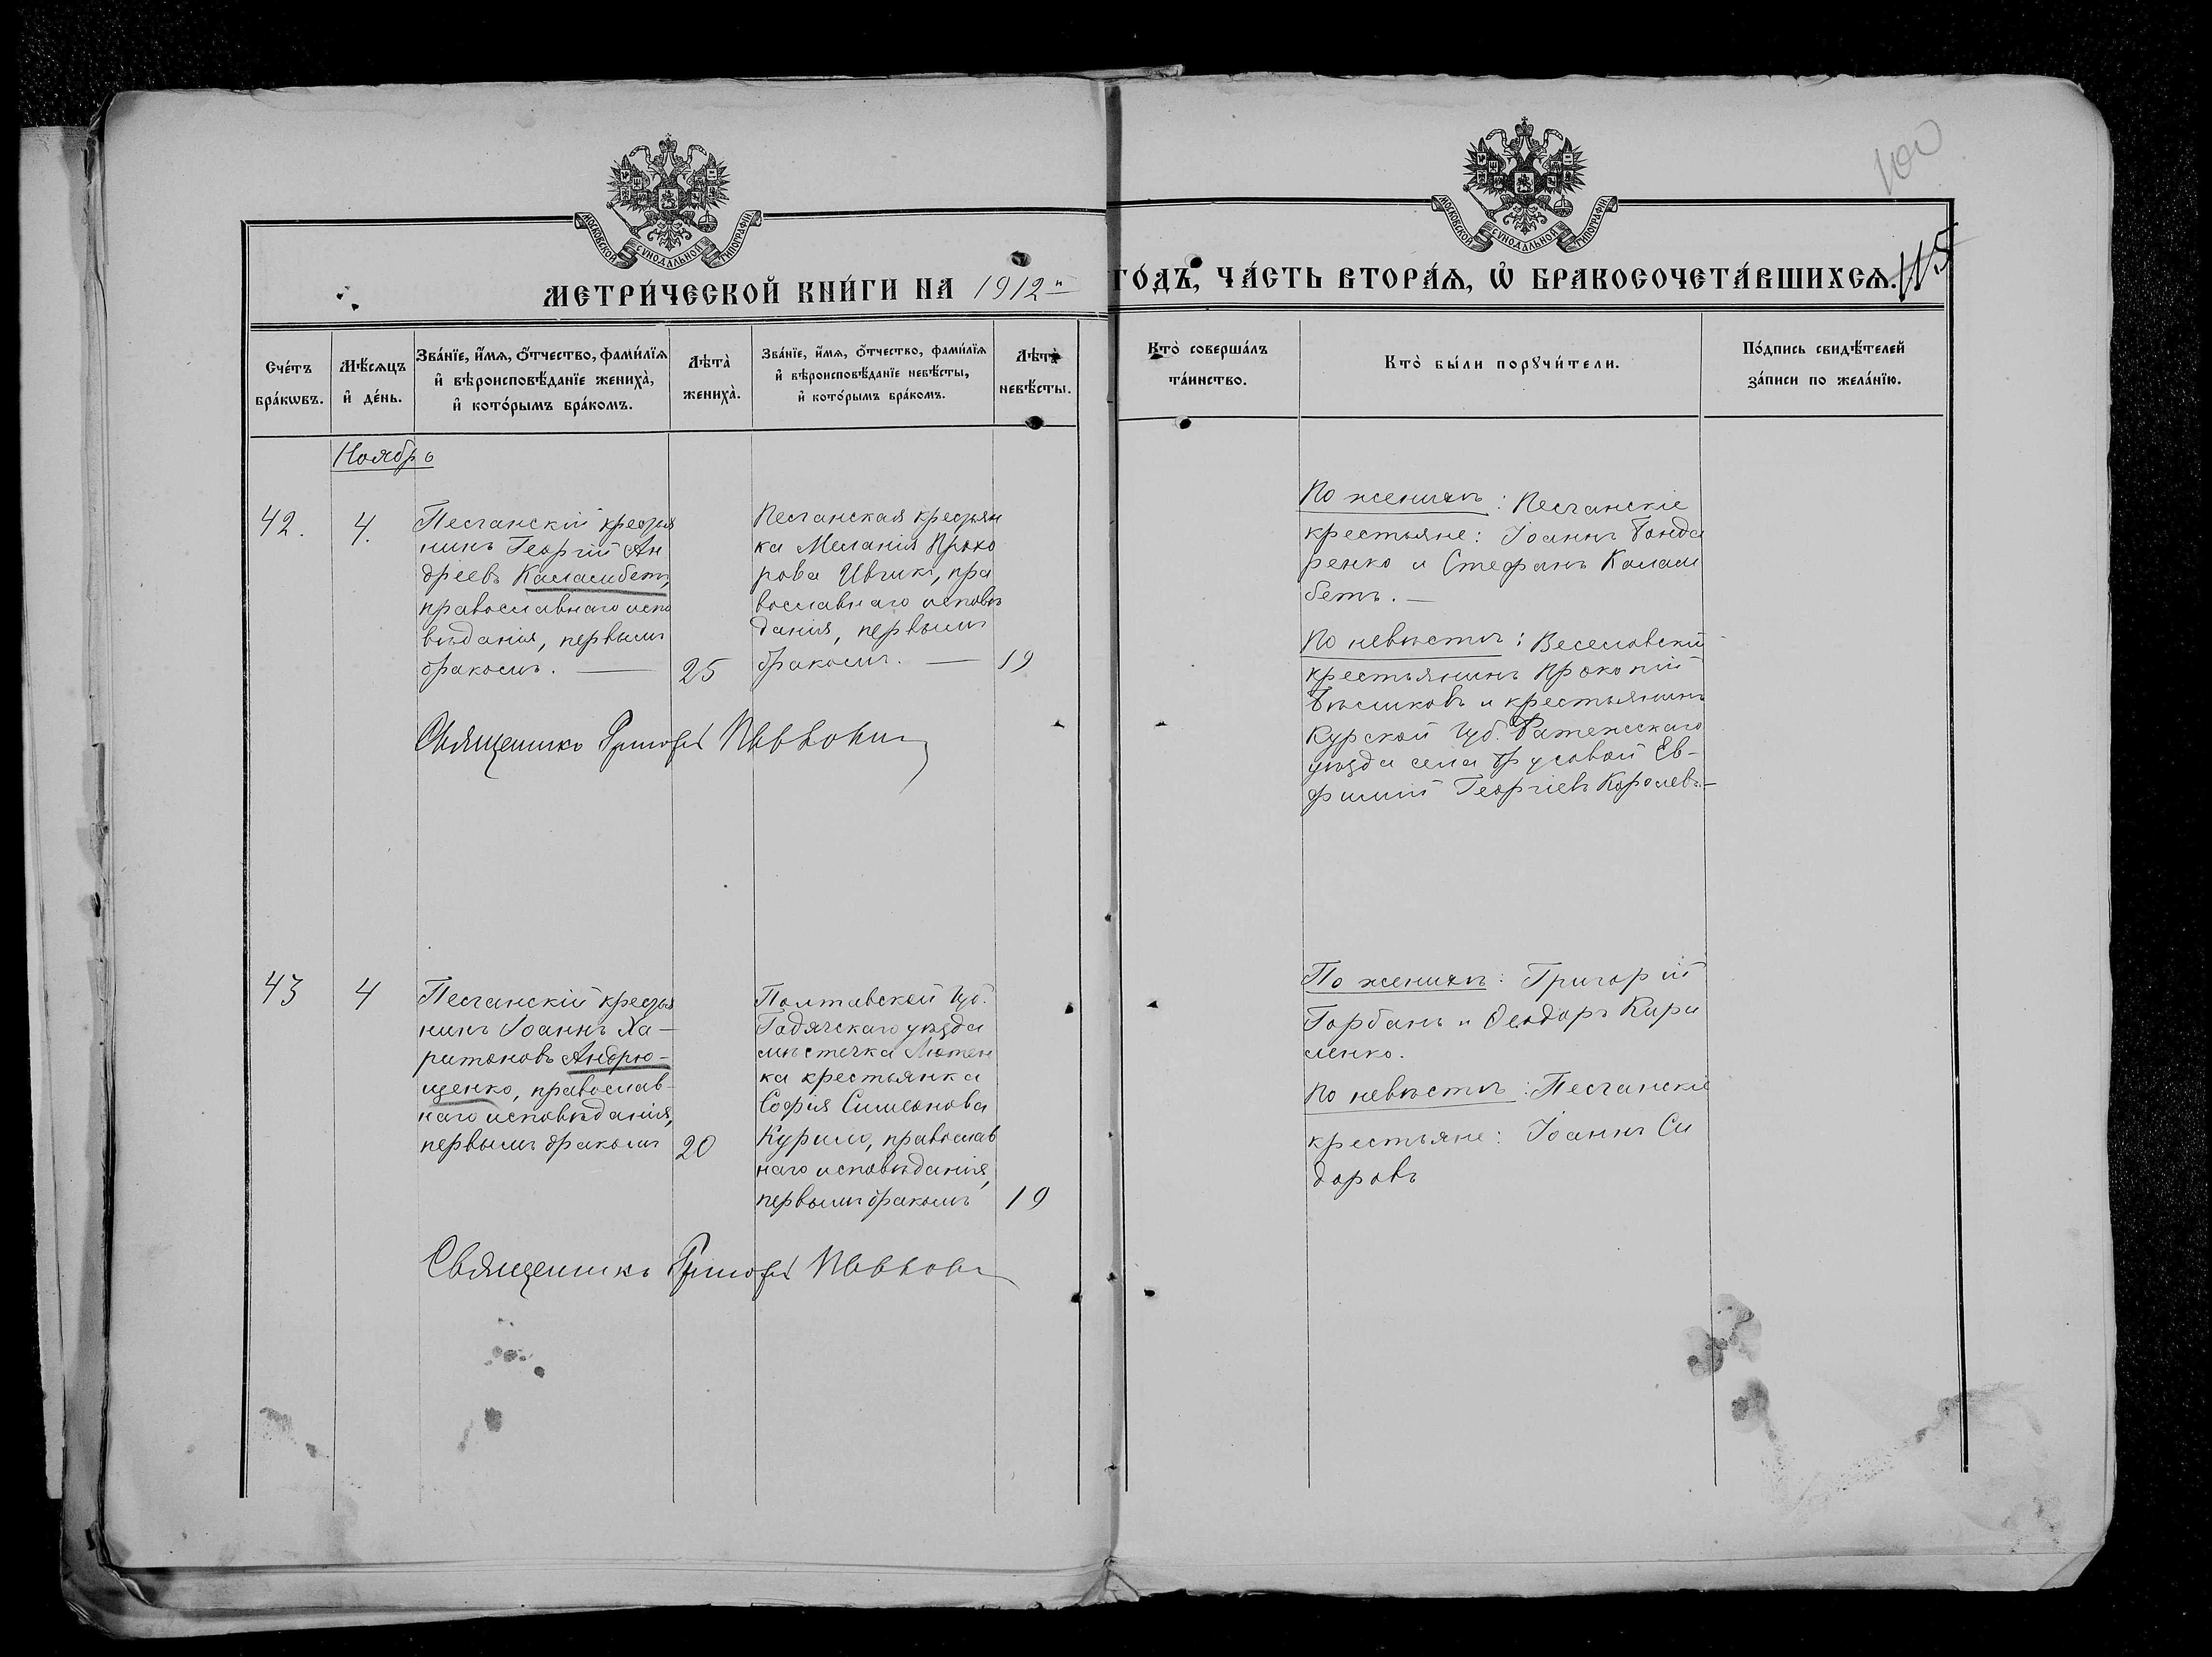 МОСКОВСКОЙ СѴНОДАЛЬНОЙ ТИПОГРАФІИ
МОСКОВСКОЙ СѴНОДАЛЬНОЙ ТИПОГРАФІИ
100
МЕТРИ́ЧЕСКОЙ КНИ́ГИ НА 1912й
ГО́ДЪ, ЧА́СТЬ ВТОРА́Ѧ, Ѡ҆ БРАКОСОЧЕТА́ВШИХСѦ.
115
Сче́тъ
бра́кѡвъ.
Мѣ́сѧцъ
и҆ де́нь.
Зва́нїе, и҆́мѧ, ѻ҆́тчество, фами́лїѧ
и҆ вѣроисповѣ́данїе жениха̀,
и҆ кото́рымъ бра́комъ.
Лѣта̀
жениха̀.
Зва́нїе, и҆́мѧ, ѻ҆́тчество, фами́лїѧ
и҆ вѣроисповѣ́данїе невѣ́сты,
и҆ кото́рымъ бра́комъ.
Лѣта̀
невѣ́сты.
Кто̀ соверша́лъ
та́инство.
Кто̀ бы́ли порꙋчи́тели.
По́дпись свидѣ́телей
за́писи по жела́нїю.
Ноябрь
42.
4.
Песчанскій крестья
нинъ Георгій Ан
дреевъ Каламбетъ,
православнаго испо
вѣданія, первымъ
бракомъ. —
25
Песчанская крестьян
ка Меланія Прохо
рова Ивчикъ, пра
вославнаго исповѣ
данія, первымъ
бракомъ. —
19
По женихѣ: Песчанскіе
крестьяне: Іоаннъ Бонда
ренко и Стефанъ Калам
бетъ. —
По невѣстѣ: Веселовскій
крестьянинъ Прокопій
и крестьянинъ
Курской губ. Фатежсскаго
уѣзда села Ев-
фимій Георгіевъ Королевъ —
Священникъ Григорій
43
4
Песчанскій крестья
нинъ Іоаннъ Ха-
ритоновъ Андрю-
щенко, православ-
наго исповѣданія,
первымъ бракомъ
20
Полтавской губ.
Гадячскаго уѣзда
мѣстечка Лютен
ка крестьянка
Софія Симеонова
Курило, православ
наго исповѣданія,
первымъ бракомъ
19
По женихѣ: Григорій
Горбань и Ѳеодоръ Кири
ленко.
По невѣстѣ: Песчанскіе
крестьяне: Іоаннъ Си
доровъ
Священникъ Григорій